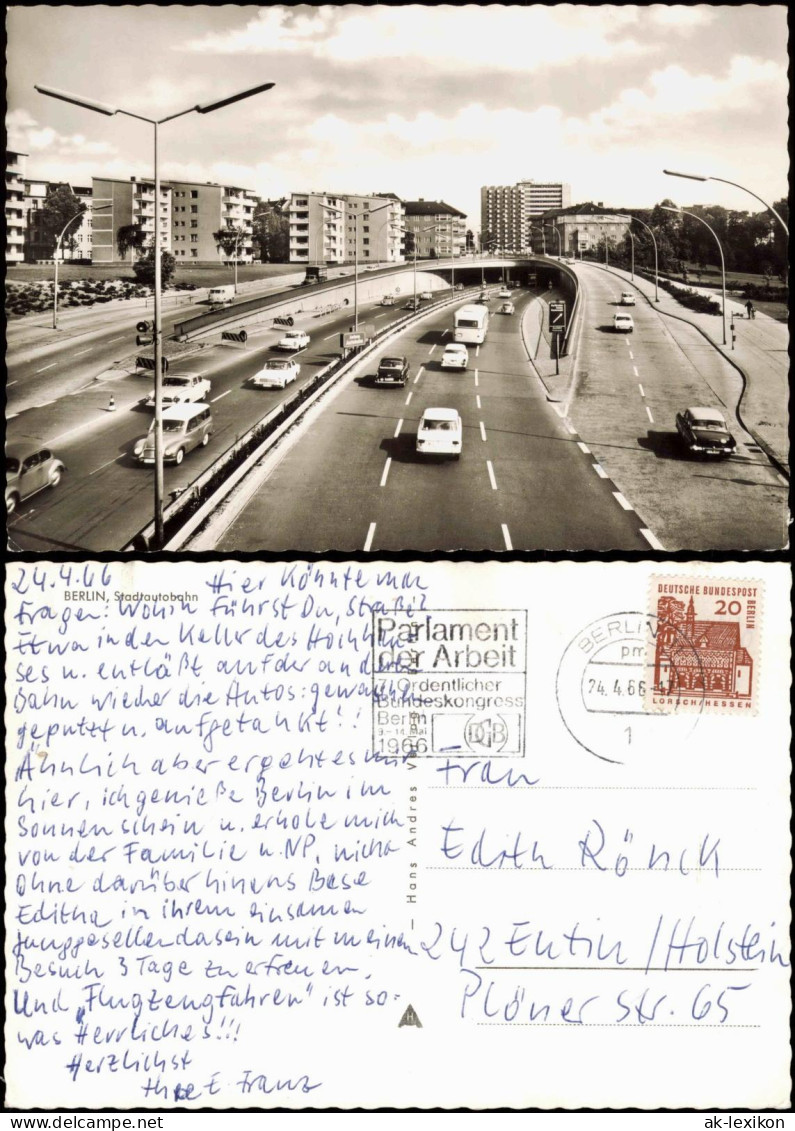 BERLIN, Stadtautobahn
24.4.66 Hier könnte man
fragen: Wohin führst Du, Straße?
Etwa in den Keller des Hochhau-
ses u. entläßt auf der andern
Bahn wieder die Autos: gewaschen
geputzt u. aufgetankt!!
Ähnlich aber ergeht es mir
hier, ich genieße Berlin im
Sonnenschein u. erhole mich
von der Familie u. NP, nicht
ohne darüber hinaus Base
Editha in ihrem einsamen
Junggesellendasein mit meinem
Besuch 3 Tage zu erfreuen.
Und "Flugzeugfahren" ist so-
was Herrliches!!!
Herzlichst
Ihre E. Franz
Parlament
der Arbeit
7. Ordentlicher
Bundeskongress
Berlin
9.-14. Mai
1966
DGB
BERLIN
pm
24.4.66
1
DEUTSCHE BUNDESPOST
20
BERLIN
LORSCH/HESSEN
Hans Andres
H
Frau
Edith Rönck
242 Eutin/Holstein
Plöner Str. 65
ak-lexikon
www.delcampe.net